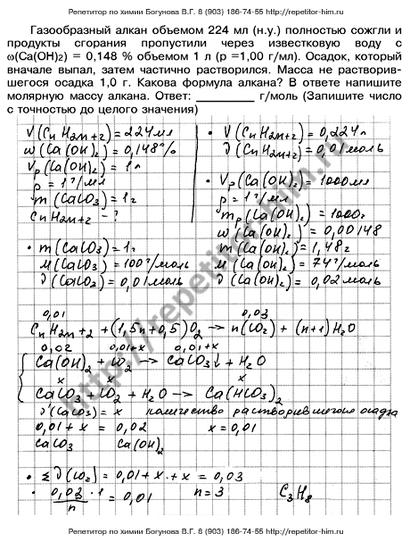 Репетитор по химии Богунова В.Г. 8 (903) 186-74-55 http://repetitor-him.ru
Газообразный алкан объемом 224 мл (н.у.) полностью сожгли и
продукты сгорания пропустили через известковую воду с
ω(Ca(OH)2) = 0,148 % объемом 1 л (р =1,00 г/мл). Осадок, который
вначале выпал, затем частично растворился. Масса не растворив-
шегося осадка 1,0 г. Какова формула алкана? В ответе напишите
молярную массу алкана. Ответ: __________ г/моль (Запишите число
с точностью до целого значения)
V(CnH2n+2)=224мл
ω(Ca(OH)2)=0,148%
Vр(Ca(OH)2)=1л
ρ=1г/мл
m(CaCO3)=1г
CnH2n+2 - ?
• m(CaCO3)=1г
M(CaCO3)=100г/моль
∂(CaCO3)=0,01моль
• V(CnH2n+2)=0,224л
∂(CnH2n+2)=0,01моль
• Vр(Ca(OH)2)=1000мл
ρ=1г/мл
mр(Ca(OH)2)=1000г
ω(Ca(OH)2)=0,00148
m(Ca(OH)2)=1,48г
M(Ca(OH)2)=74г/моль
∂(Ca(OH)2)=0,02моль
0,01 0,03
CnH2n+2+(1,5n+0,5)O2 → n(CO2)+(n+1)H2O
0,02 0,01+x 0,01+x
Ca(OH)2+CO2 → CaCO3↓+H2O
x x
CaCO3+CO2+H2O → Ca(HCO3)2
∂'(CaCO3)=x количество растворившегося осадка
0,01+x=0,02 x=0,01
CaCO3 Ca(OH)2
• Σ∂(CO2)=0,01+x+x=0,03
• 0,03·1/n=0,01 n=3 C3H8
http://repetitor-him.ru
Репетитор по химии Богунова В.Г. 8 (903) 186-74-55 http://repetitor-him.ru